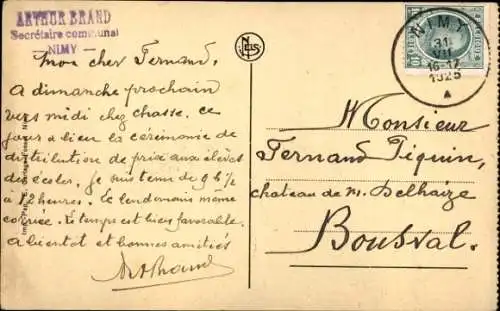 ARTHUR BRAND
Secrétaire communal
— NIMY —
Mon cher Fernand,
A dimanche prochain
vers midi chez chasse. Ce
jour a lieu la cérémonie de
distribution de prix aux élèves
des écoles. Je suis tenu de 9 h ½
à 12 heures. Le lendemain même
corvée. Le temps est bien favorable.
A bientôt et bonnes amitiés
ABrand
NIMY
31
VII
16-17
1925
Monsieur
Fernand Piquin,
château de M. Delhaize
Bousval.